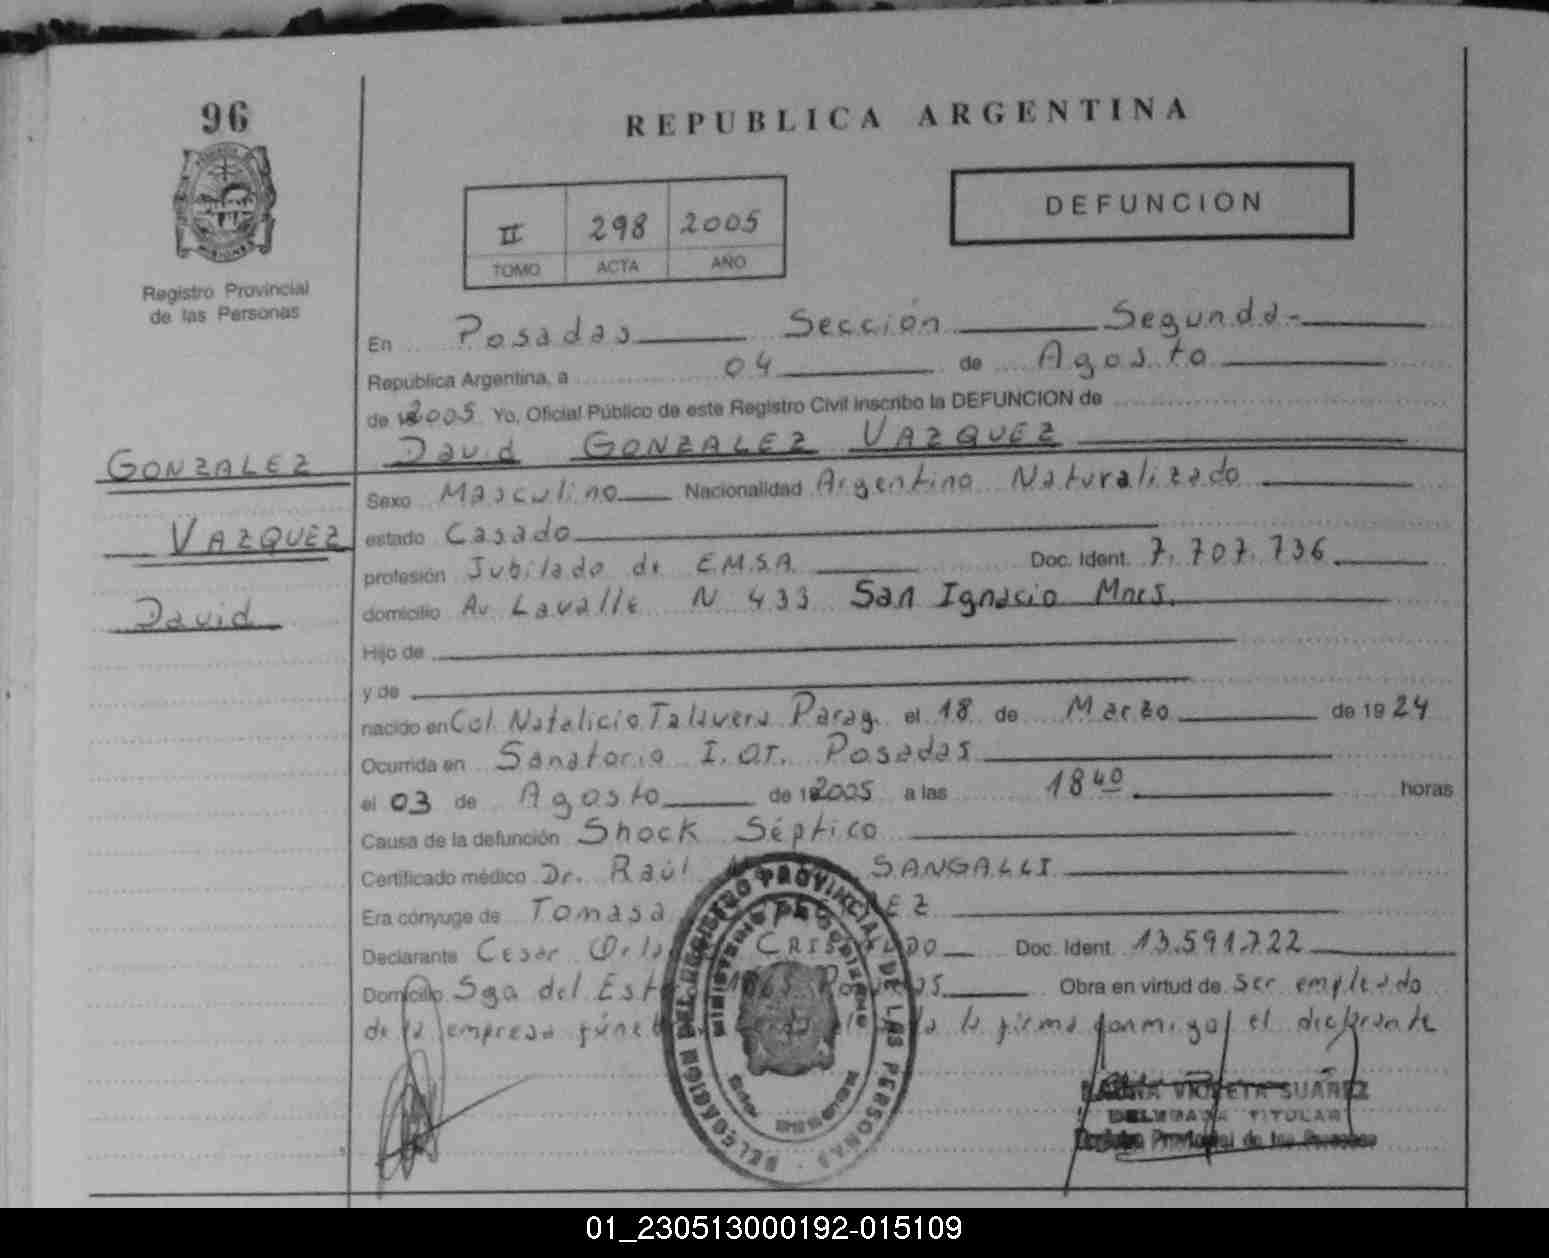 96
REPUBLICA ARGENTINA
II 298 2005
TOMO ACTA AÑO
DEFUNCION
Registro Provincial
de las Personas
En Posadas Sección Segunda-
República Argentina, a 04 de Agosto
de 2005 Yo, Oficial Público de este Registro Civil inscribo la DEFUNCION de
David GONZALEZ VAZQUEZ
GONZALEZ
VAZQUEZ
David
Sexo Masculino Nacionalidad Argentino Naturalizado
estado Casado
profesión Jubilado de E.M.S.A. Doc. Ident. 7.707.736
domicilio Av Lavalle N 433 San Ignacio Mnes.
Hijo de
y de
nacido en Col. Natalicio Talavera Parag. el 18 de Marzo de 1924
Ocurrida en Sanatorio I.OT. Posadas
el 03 de Agosto de 2005 a las 18 40 horas
Causa de la defunción Shock Séptico
Certificado médico Dr. Raúl SANGALLI
Era cónyuge de Tomasa
Declarante Cesar Doc. Ident. 13.591.722
Domicilio Sgo del Obra en virtud de Ser empleado
de la empresa la firma conmigo el declarante
DELEGACION DEL REGISTRO PROVINCIAL DE LAS PERSONAS
MINISTERIO DE GOBIERNO
SUAREZ
DELEGADA TITULAR
Registro Provincial de las Personas
01_230513000192-015109